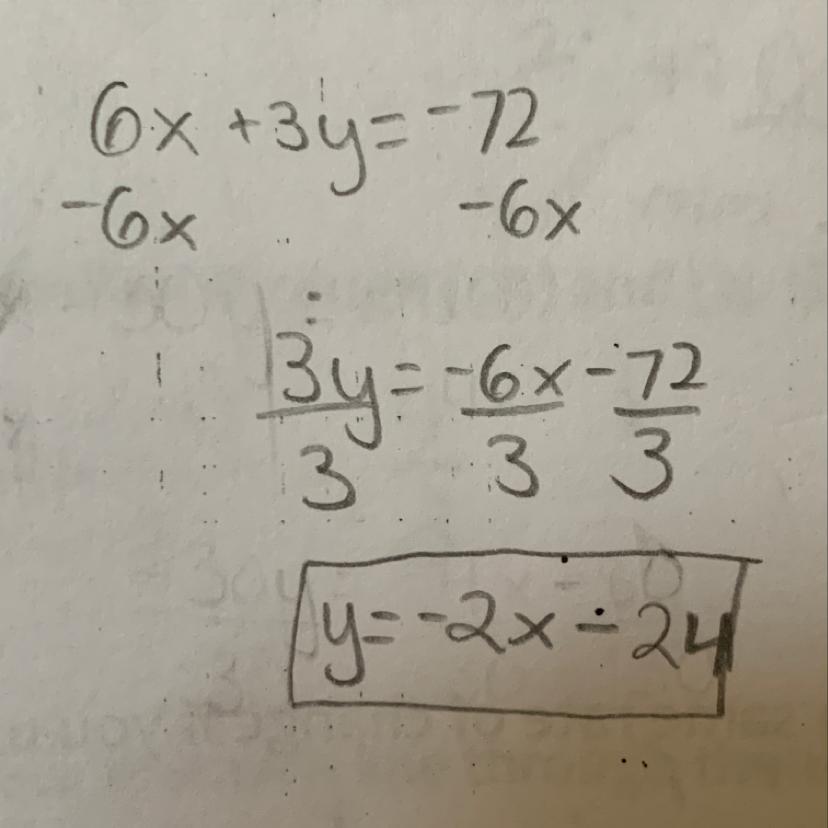 6x + 3y = -72
-6x -6x
3y = -6x - 72
3 3 3
y = -2x - 24